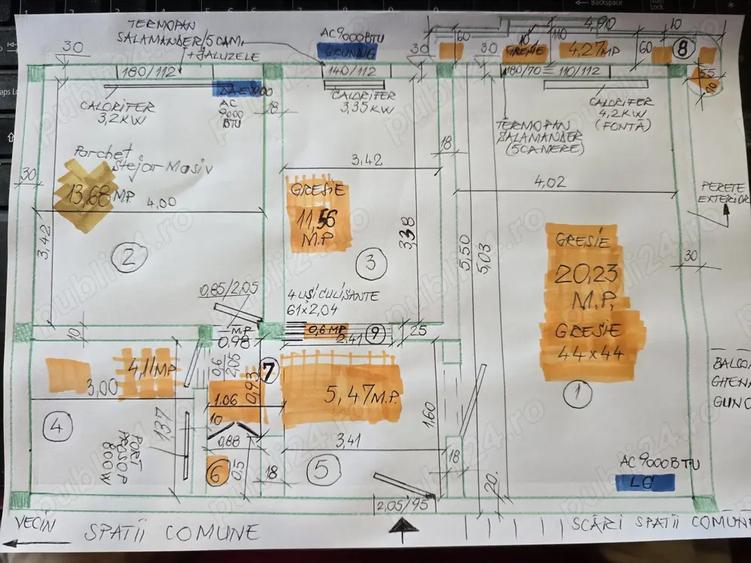 TERMOPAN
SALAMANDER/5CAM.
+JALUZELE
AC9000BTU
GRUNDIG
4,90
10
110
60
GRESIE
4,27MP
60
8
30
180/112
140/112
30
30
180/70
110/112
55
10
CALORIFER
3,2KW
AC
9000
BTU
18
CALORIFER
3,35KW
CALORIFER
4,2KW
(FONTĂ)
TERMOPAN
SALAMANDER
(5CAMERE)
18
Parchet
Stejar Masiv
3,42
4,02
PERETE
EXTERIOR
30
13,68MP
4,00
GRESIE
11,56
M.P.
3,38
5,50
5,03
GRESIE
20,23
M.P.
GRESIE
44x44
30
3,42
2
3
0,85/2,05
4 UȘI CULISANTE
61x2,04
10
MP
0,98
0,6MP
9
2,41
25
0,6
2,05
0,93
7
4,11MP
3,00
1.06
10
5,47M.P.
1,60
1
BALCO
GHENA
GUNO
4
PORT
PROSOP
800W
1,37
0,88
6
0,5
18
3,41
5
18
20.
AC 9000BTU
LG
2,05/95
VECIN
SPATII COMUNE
SCĂRI SPATII COMUNE
publi24.ro